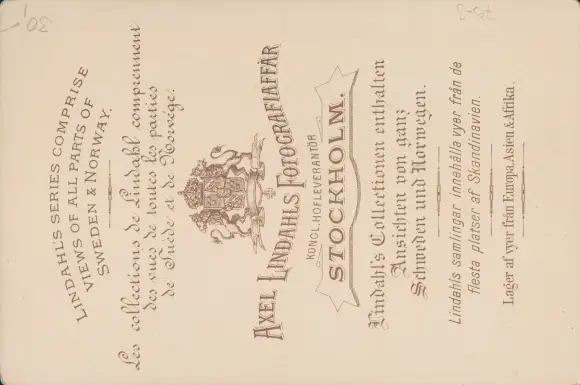 LINDAHL'S SERIES COMPRISE
VIEWS OF ALL PARTS OF
SWEDEN & NORWAY.
Les collections de Lindahl comprennent
des vues de toutes les parties
de Suède et de Norvége.
AXEL LINDAHLS FOTOGRAFIAFFÄR
KONGL. HOFLEVERANTÖR
STOCKHOLM.
Lindahl's Collectionen enthalten
Ansichten von ganz
Schweden und Norwegen.
Lindahls samlingar innehålla vyer från de
flesta platser af Skandinavien.
Lager af vyer från Europa, Asien & Afrika.